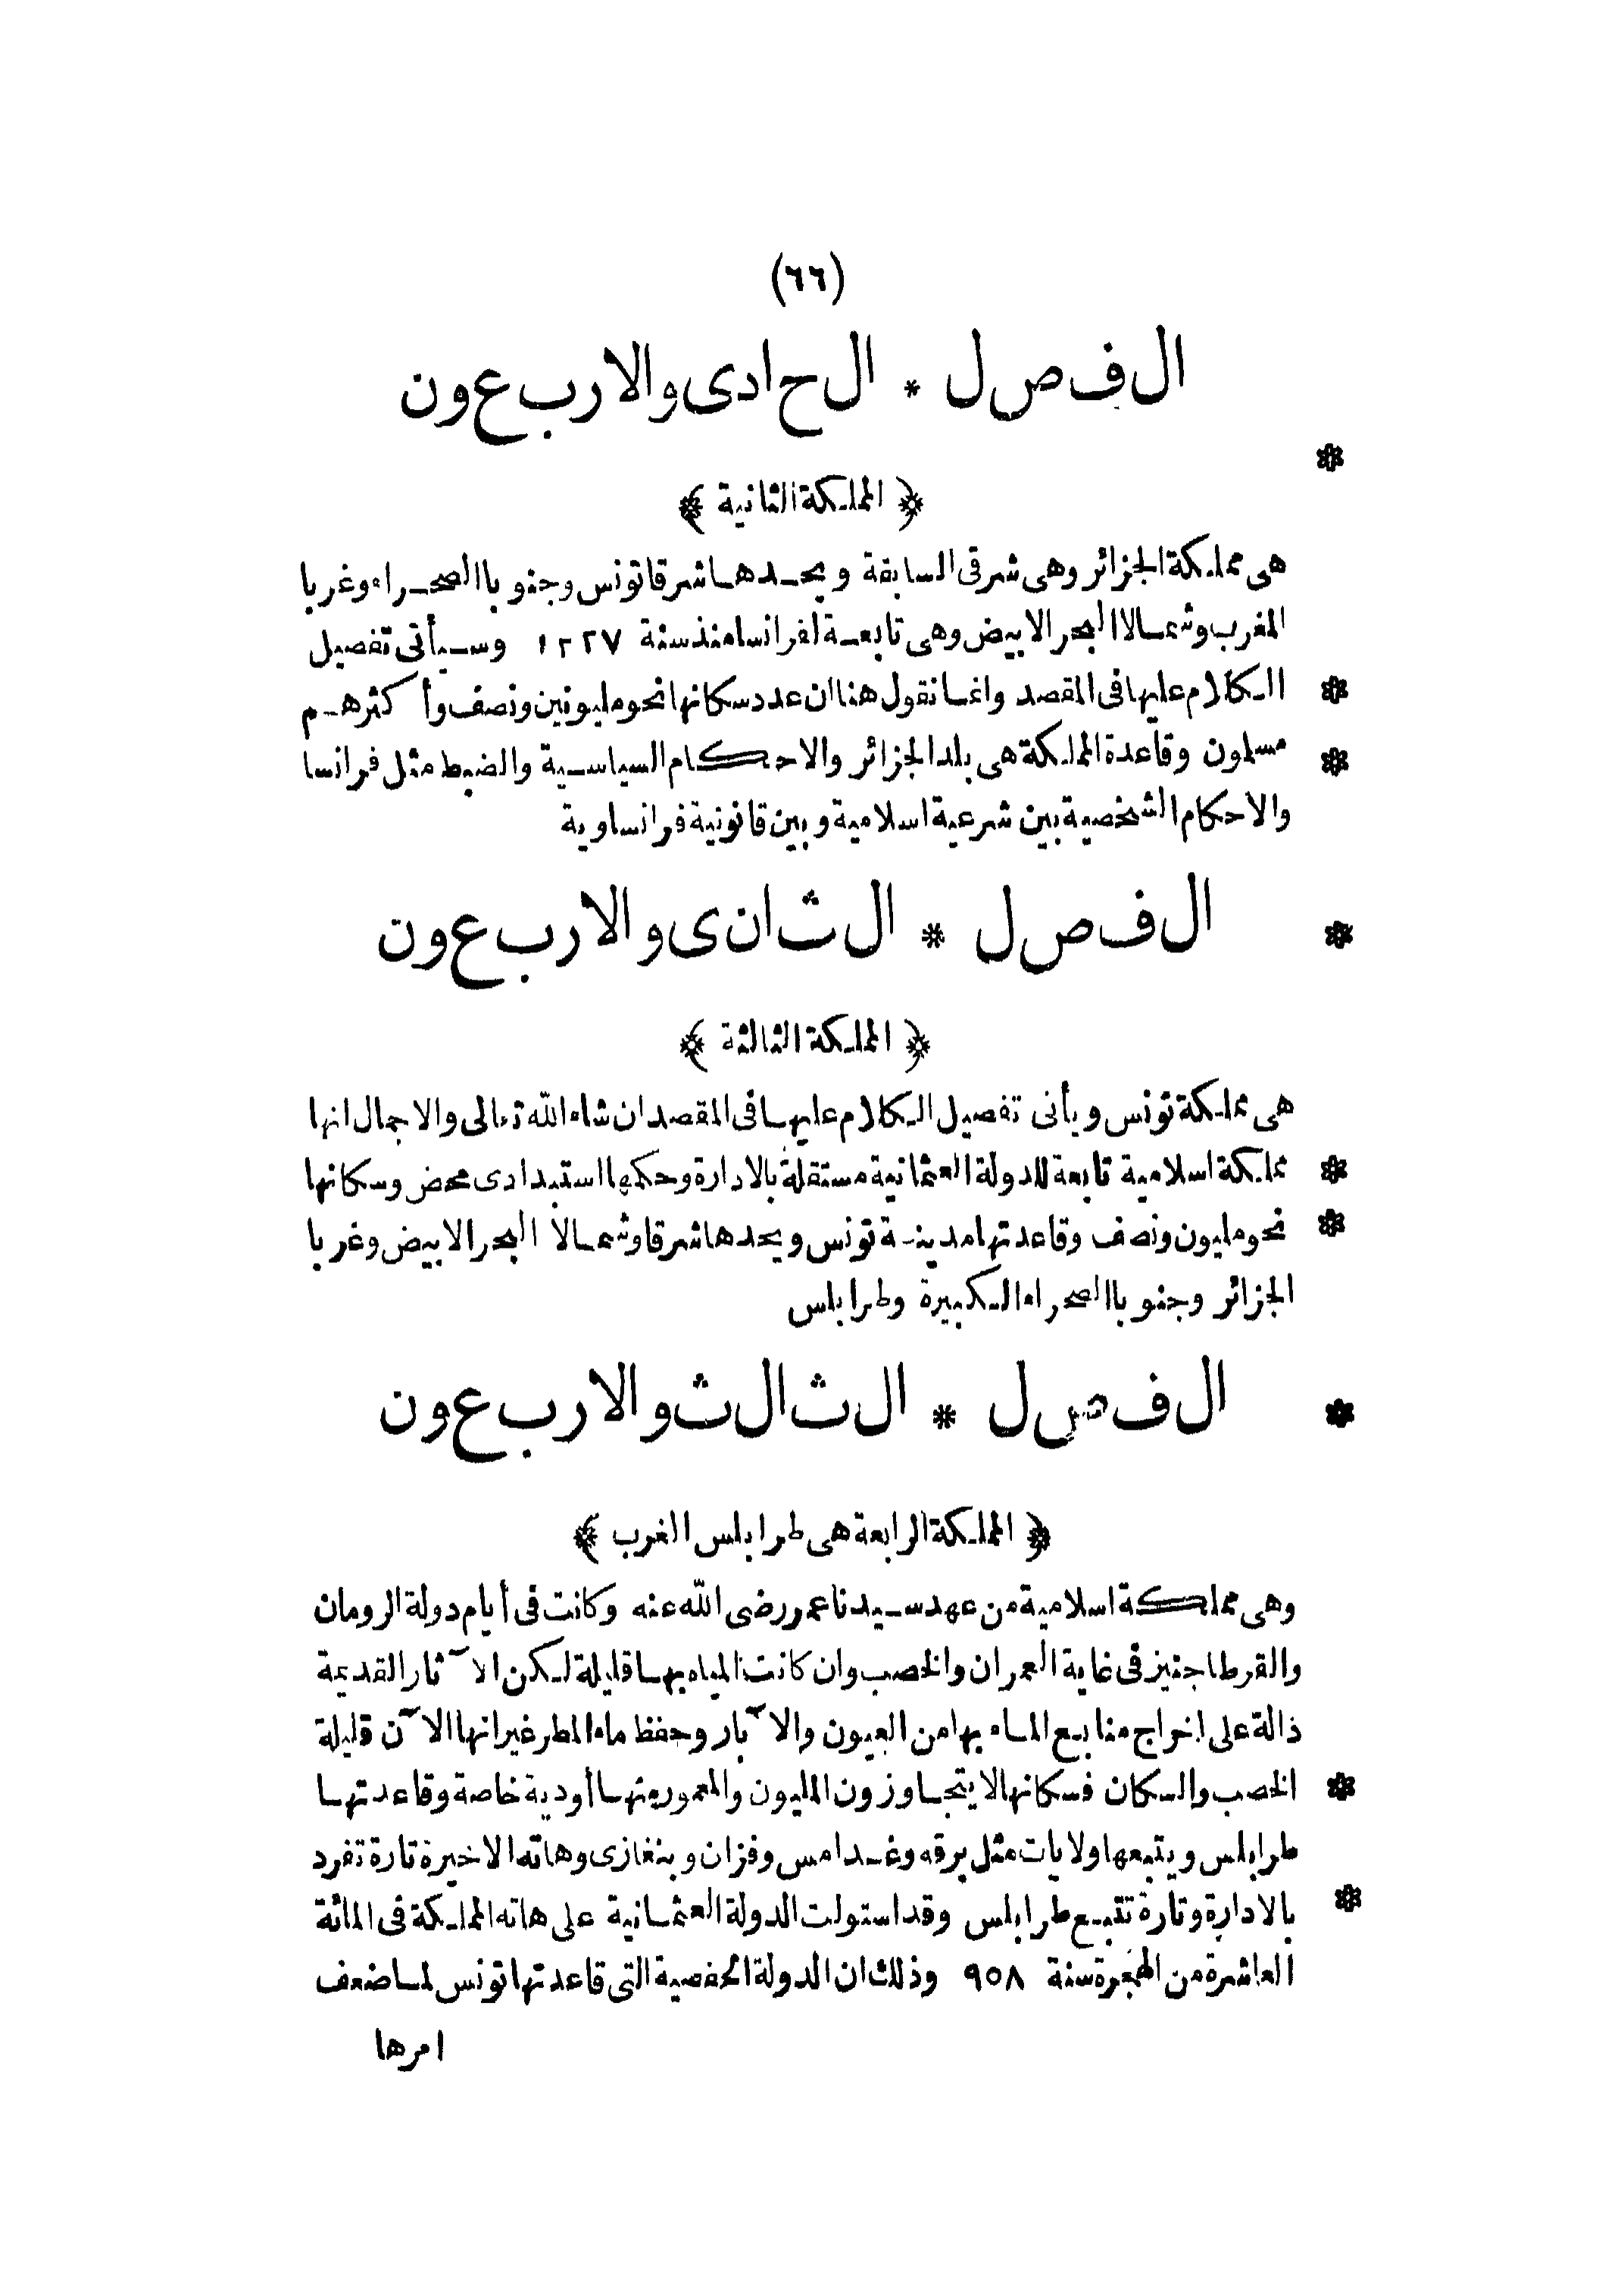 (٦٦)
الفصل * الحادى والاربعون
*
﴿ المملكة الثانية ﴾
هى مملكة الجزائر وهى شرقى السابقة ويحدها شرقا تونس وجنوبا الصحراء وغربا
المغرب وشمالا البحر الابيض وهى تابعة لفرانسا منذ سنة ١٢٢٧ وسيأتى تفصيل
* الكلام عليها فى المقصد وانما نقول هنا ان عدد سكانها نحو مليونين ونصف وأكثرهم
* مسلمون وقاعدة المملكة هى بلد الجزائر والاحكام السياسية والضبط مثل فرانسا
والاحكام الشخصية بين شرعية اسلامية وبين قانونية فرانساوية
* الفصل * الثانى والاربعون
﴿ المملكة الثالثة ﴾
هى مملكة تونس ويأتى تفصيل الكلام عليها فى المقصد ان شاء الله تعالى والاجمال انها
* مملكة اسلامية تابعة للدولة العثمانية مستقلة بالادارة وحكمها استبدادى محض وسكانها
* نحو مليون ونصف وقاعدتها مدينة تونس ويحدها شرقا وشمالا البحر الابيض وغربا
الجزائر وجنوبا الصحراء الكبيرة وطرابلس
* الفصل * الثالث والاربعون
﴿ المملكة الرابعة هى طرابلس الغرب ﴾
وهى مملكة اسلامية من عهد سيدنا عمر رضى الله عنه وكانت فى أيام دولة الرومان
والقرطاجنيز فى غاية العمران والخصب وان كانت المياه بها قليلة لكن الآثار القديمة
دالة على اخراج منابع الماء بها من العيون والآبار وحفظ ماء المطر غير انها الآن قليلة
* الخصب والسكان فسكانها لا يتجاوزون المليون والمعمور منها أودية خاصة وقاعدتها
طرابلس ويتبعها ولايات مثل برقه وغدامس وفزان وبنغازى وهاته الاخيرة تارة تفرد
* بالادارة وتارة تتبع طرابلس وقد استولت الدولة العثمانية على هاته المملكة فى المائة
العاشرة من الهجرة سنة ٩٥٨ وذلك ان الدولة الحفصية التى قاعدتها تونس لما ضعف
امرها